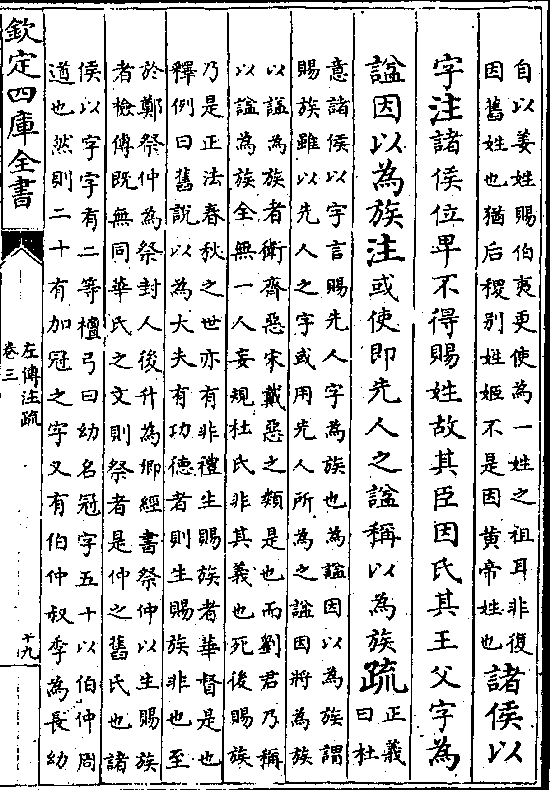 自以姜姓賜伯夷更使為一姓之祖耳非復
因舊姓也猶后稷別姓姬不是因黃帝姓也
諸侯以
字注諸侯位卑不得賜姓故其臣因氏其王父字為
諡因以為族注或使即先人之諡稱以為族疏
正義
曰杜
意諸侯以字言賜先人字為族也為諡因以為族謂
賜族雖以先人之字或用先人所為之諡因將為族
以諡為族者衛齊惡宋戴惡之類是也而劉君乃稱
以諡為族全無一人妄規杜氏非其義也死後賜族
乃是正法春秋之世亦有非禮生賜族者華督是也
釋例曰舊說以為大夫有功德者則生賜族非也至
於鄭祭仲為祭封人後升為卿經書祭仲以生賜族
者檢傳既無同華氏之文則祭者是仲之舊氏也諸
侯以字字有二等檀弓曰幼名冠字五十以伯仲周
道也然則二十有加冠之字又有伯仲叔季為長幼
欽定四庫全書
左傳注疏
卷三
十九